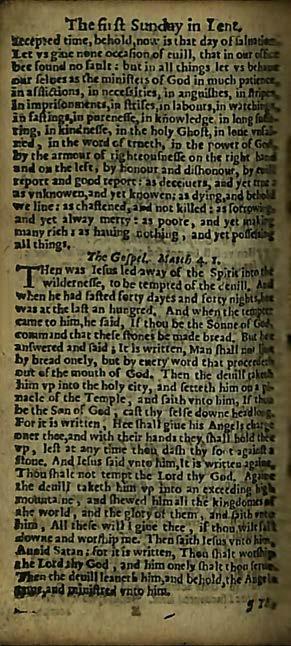 The first Sunday in Lent.
accepted time, behold, now is that day of saluation.
Let vs giue none occasion of euill, that in our office
bee found no fault: but in all things let vs behaue
our selues as the ministers of God in much patience,
in afflictions, in necessities, in anguishes, in stripes,
in imprisonments, in strifes, in labours, in watchings,
in fastings, in purenesse, in knowledge, in long suffe-
ring, in kindnesse, in the holy Ghost, in loue vnfai-
ned, in the word of trueth, in the power of God,
by the armour of righteousnesse on the right hand
and on the left, by honour and dishonour, by euill
report and good report: as deceiuers, and yet true:
as vnknowen, and yet knowen: as dying, and behold
we liue: as chastened, and not killed: as sorrowing,
and yet alway merry: as poore, and yet making
many rich: as hauing nothing, and yet possessing
all things.
The Gospel. Matth 4. 1.
THen was Iesus led away of the Spirit into the
wildernesse, to be tempted of the deuill. And
when he had fasted forty dayes and forty nights, hee
was at the last an hungred. And when the tempter
came to him, he said, If thou be the Sonne of God,
command that these stones be made bread. But hee
answered and said, It is written, Man shall not liue
by bread onely, but by euery word that proceedeth
out of the mouth of God. Then the deuill taketh
him vp into the holy city, and setteth him on a pi-
nacle of the Temple, and saith vnto him, If thou
be the Son of God, cast thy selfe downe headlong.
For it is written, Hee shall giue his Angels charge
ouer thee, and with their hands they shall hold thee
vp, lest at any time thou dash thy foot against a
stone. And Iesus said vnto him, It is written againe,
Thou shalt not tempt the Lord thy God. Againe
the deuill taketh him vp into an exceeding high
mountaine, and shewed him all the kingdomes of
the world, and the glory of them, and saith vnto
him, All these will I giue thee, if thou wilt fall
downe and worship me. Then saith Iesus vnto him,
Auoid Satan: for it is written, Thou shalt worship
the Lord thy God, and him onely shalt thou serue.
Then the deuill leaueth him, and behold, the Angels
came, and ministred vnto him.